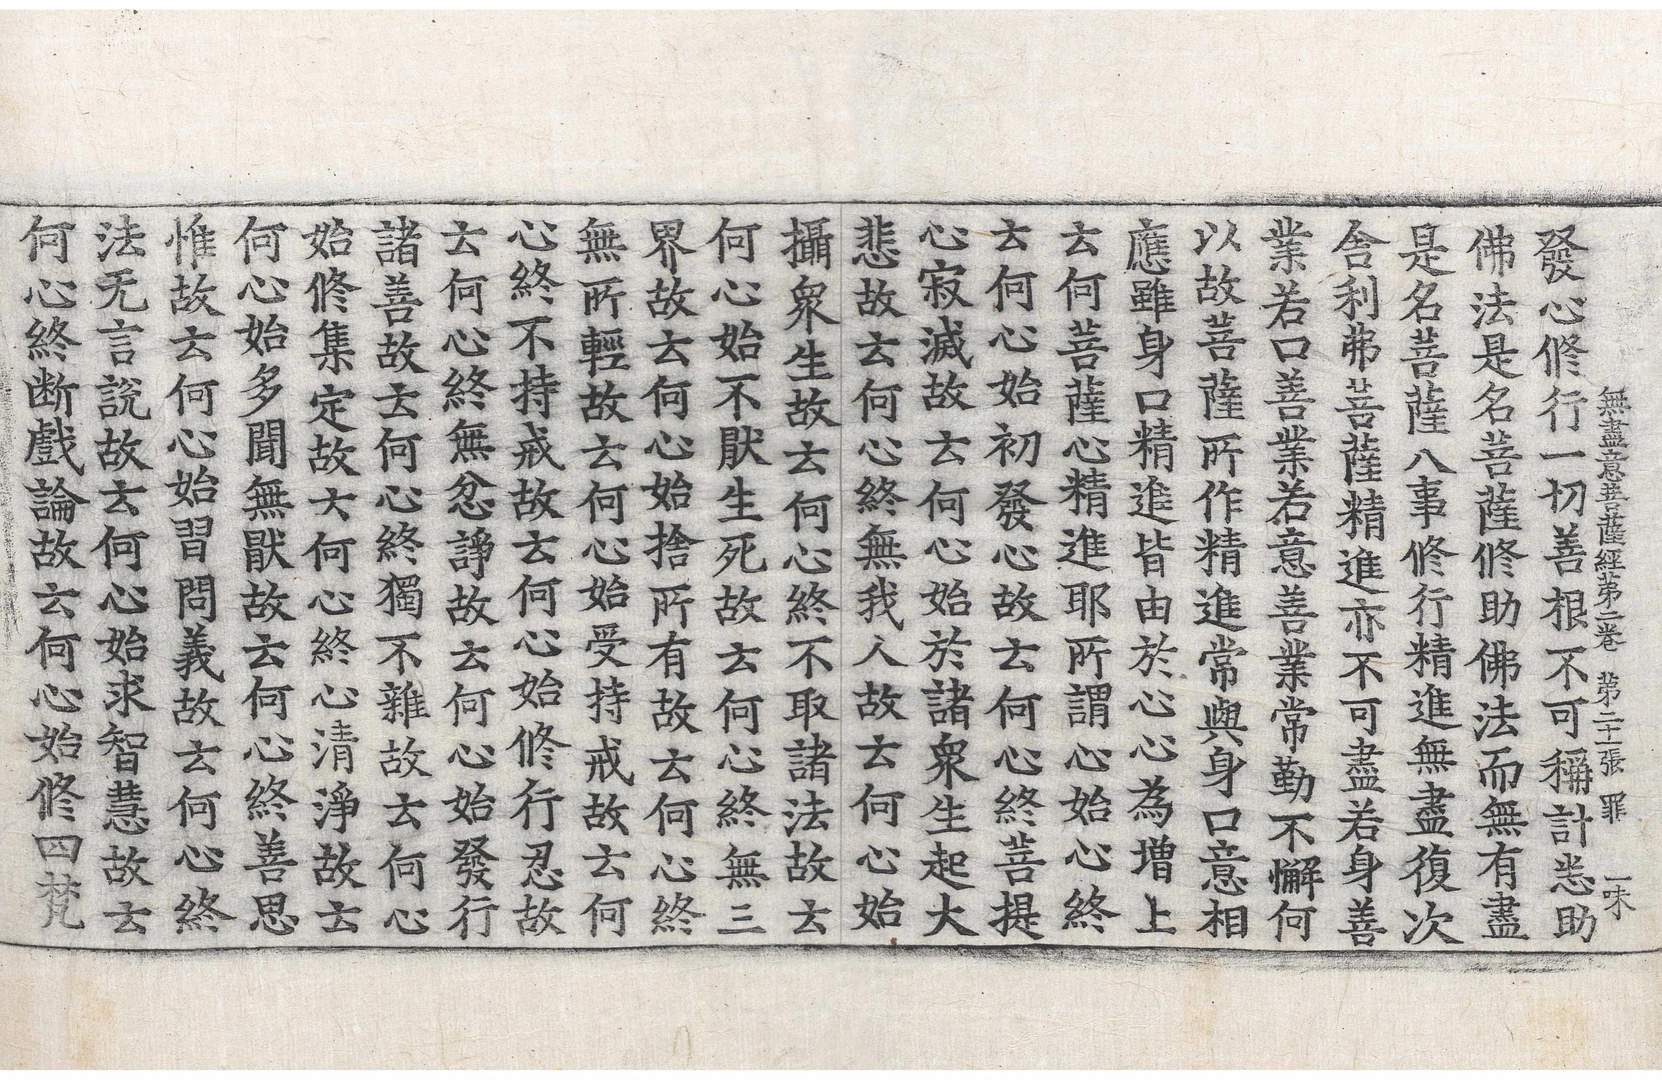 無盡意菩薩經第二卷 第二十一張 罪 一味
發心修行一切善根不可稱計悉助
佛法是名菩薩修助佛法而無有盡
是名菩薩八事修行精進無盡復次
舍利弗菩薩精進亦不可盡若身善
業若口善業若意善業常勤不懈何
以故菩薩所作精進常與身口意相
應雖身口精進皆由於心心為增上
云何菩薩心精進耶所謂心始心終
云何心始初發心故云何心終菩提
心寂滅故云何心始於諸衆生起大
悲故云何心終無我人故云何心始
攝衆生故云何心終不取諸法故云
何心始不猒生死故云何心終無三
界故云何心始捨所有故云何心終
無所輕故云何心始受持戒故云何
心終不持戒故云何心始修行忍故
云何心終無忿諍故云何心始發行
諸善故云何心終獨不雜故云何心
始修集定故云何心終心清淨故云
何心始多聞無猒故云何心終善思
惟故云何心始習問義故云何心終
法无言說故云何心始求智慧故云
何心終断戲論故云何心始修四梵